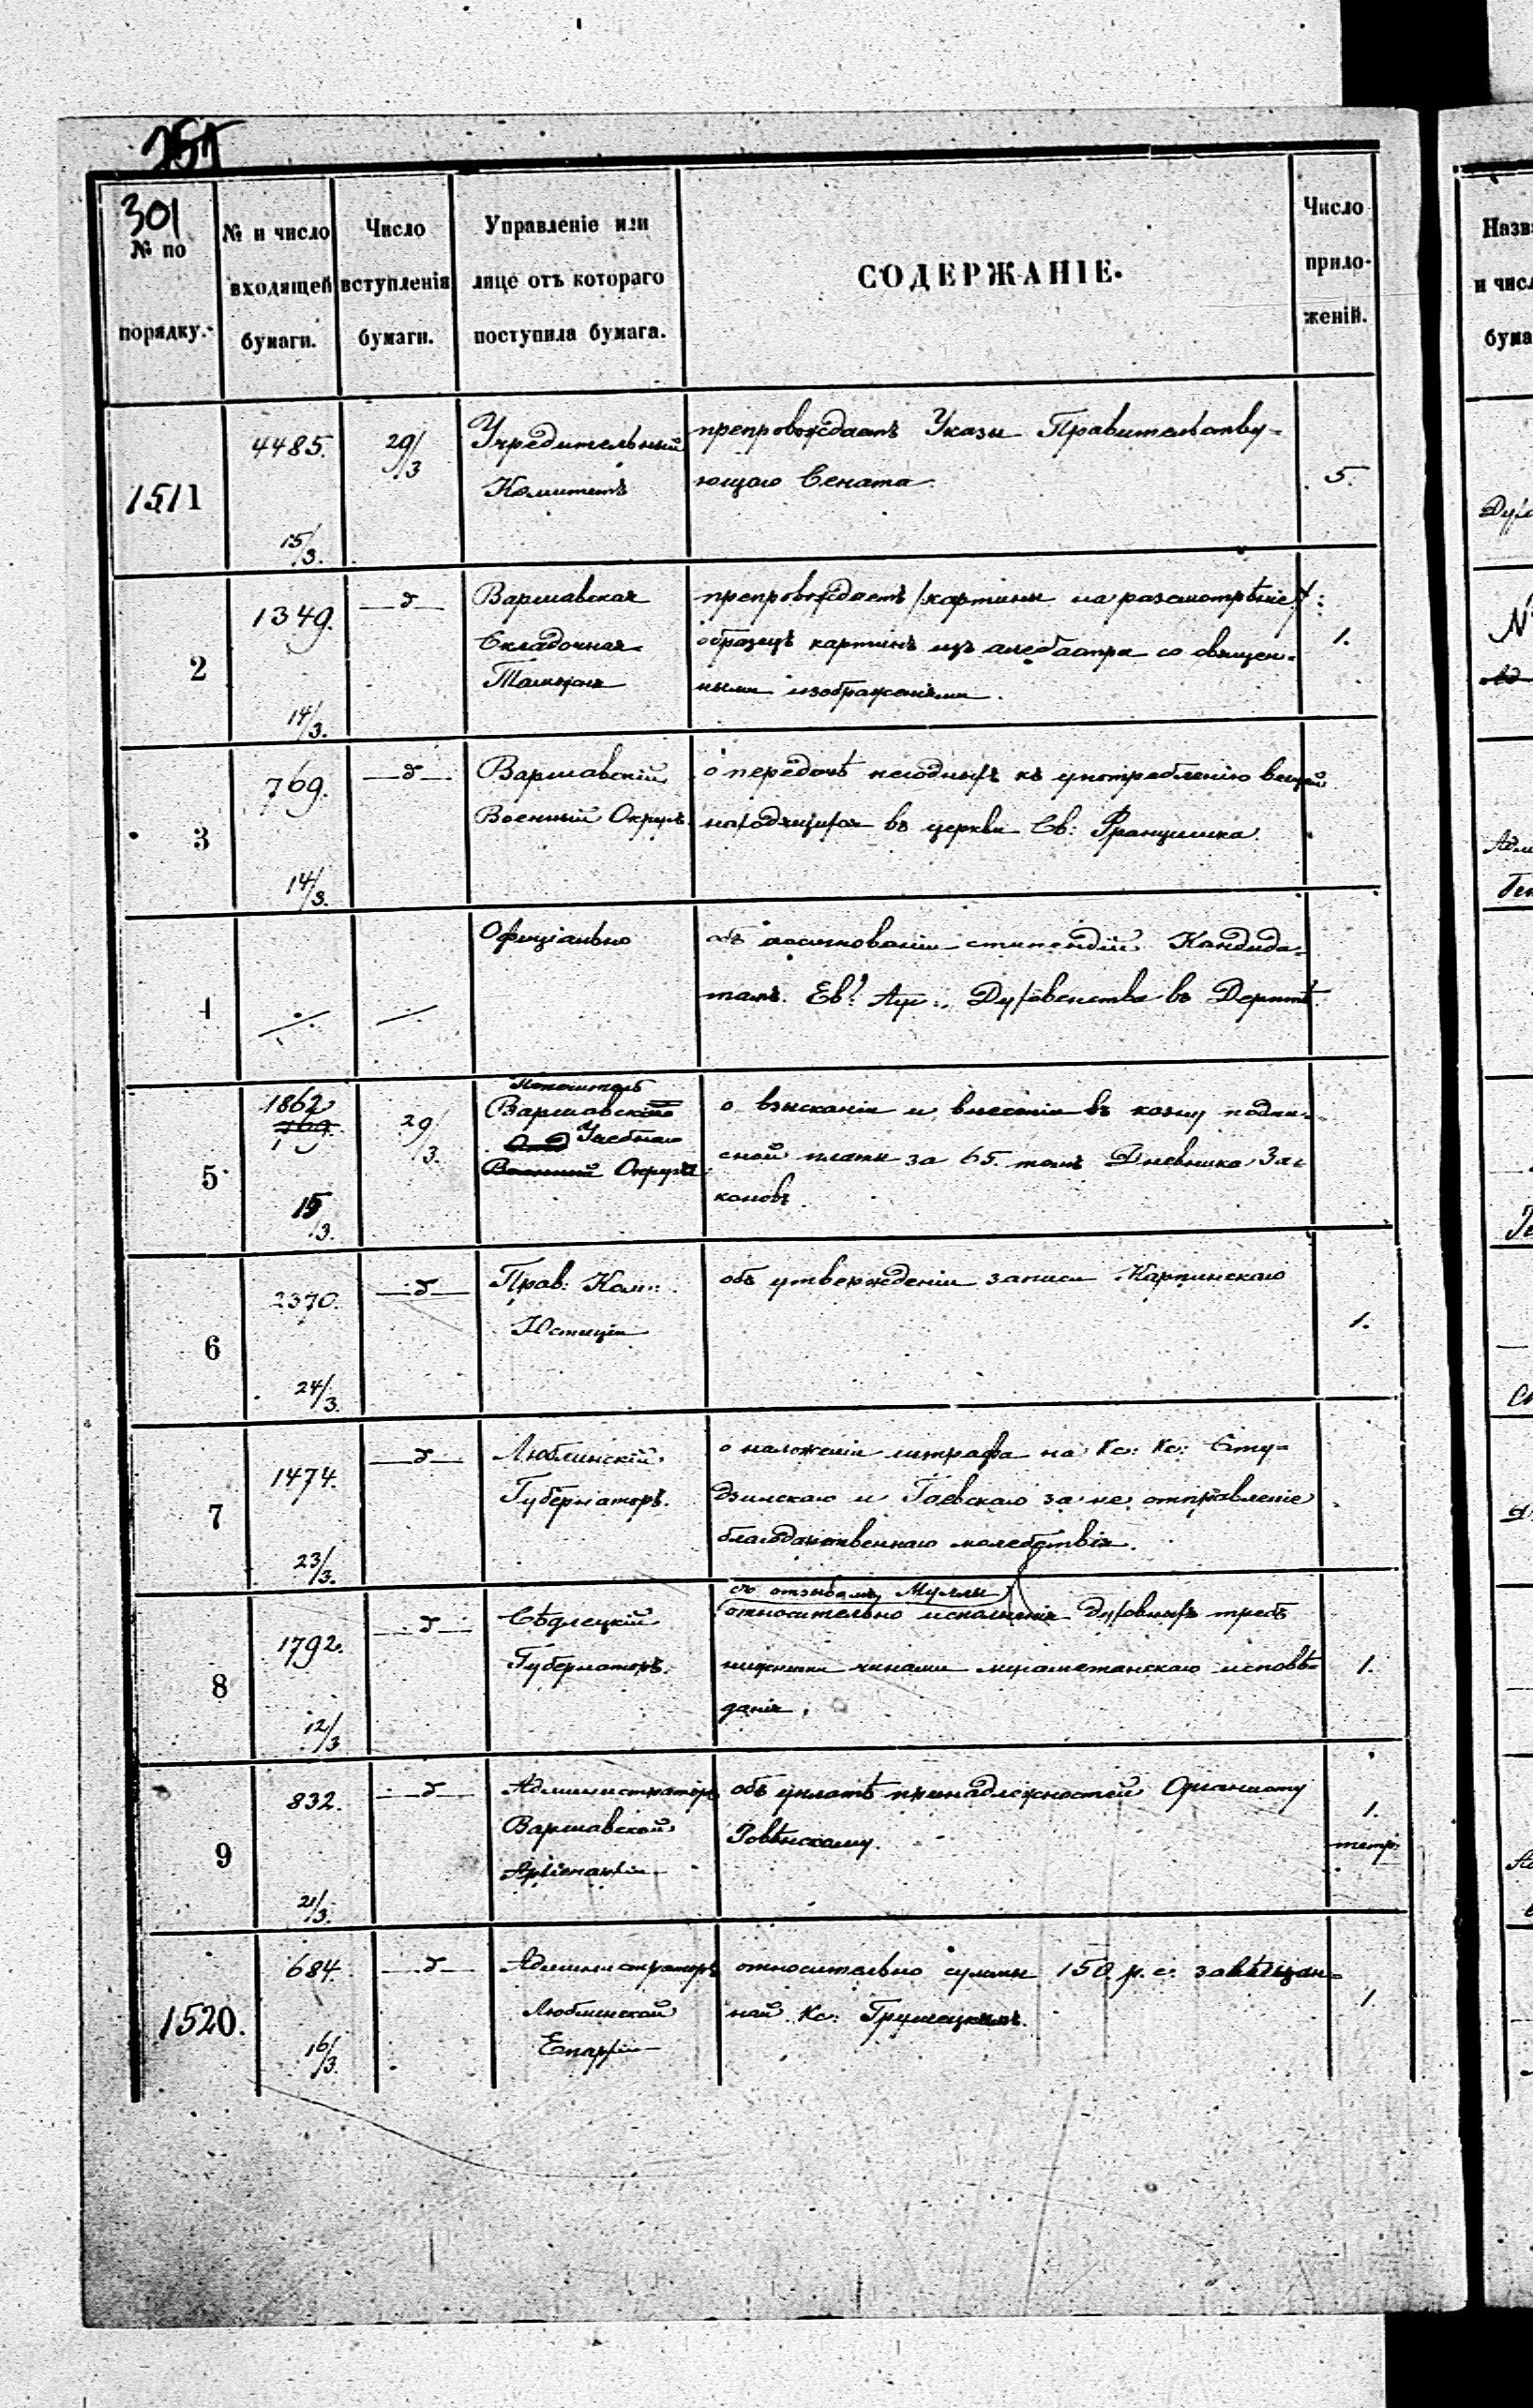 251
301
№ по порядку.
№ и число входящей бумаги.
Число вступленія бумаги.
Управленіе или лице отъ котораго поступила бумага.
СОДЕРЖАНІЕ.
Число приложеній.
1511
4485.
15/3.
29/3
Учредительный
Комитетъ
препровождаетъ Указы Правительству-
ющаго Сената.
5.
2
1349.
14/3.
—д—
Варшавская
Складочная
Таможня
препровождаетъ картины на разсмотрѣніе
образецъ картинъ изъ алебастра со священ-
ными изображеніями.
1.
3
769.
14/3.
—д—
Варшавскій
Военный Округъ.
о передачѣ негодныхъ къ употребленію вещей
находящихся въ церкви Св: Францишка.
4
Офиціально
объ ассигнованіи стипендій Кандида-
тамъ Ев: Ауг: Духовенства въ Дерптѣ.
5
1862
769.
15/3.
29/3.
Варшавскаго
Учебнаго
Военный Округа
о взысканіи и внесеніи въ казну подпи-
сной платы за 65. томъ Дневника За-
коновъ.
6
2370.
24/3.
—д—
Прав: Ком:
Юстиціи
объ утвержденіи записи Карпинскаго
1.
7
1474.
23/3.
—д—
Люблинскій
Губернаторъ.
о наложеніи штрафа на Кс: Кс: Сту-
дзинскаго и Гаевскаго за не отправленіе
благодарственнаго молебствія.
8
1792.
12/3
—д—
Сѣдлецкій
Губернаторъ.
съ отзывомъ Муллы
относительно исполненія духовныхъ требъ
нижними чинами мугаметанскаго исповѣ-
данія.
1.
9
832.
21/3.
—д—
Администраторъ
Варшавской
Архіепархіи
объ уплатѣ принадлежностей Органисту
Ровѣнскому.
1.
тетр.
1520.
684.
16/3.
—д—
Администраторъ
Люблинской
Епархіи
относительно суммы 150 р. с. завѣщан-
ной Кс:
1.